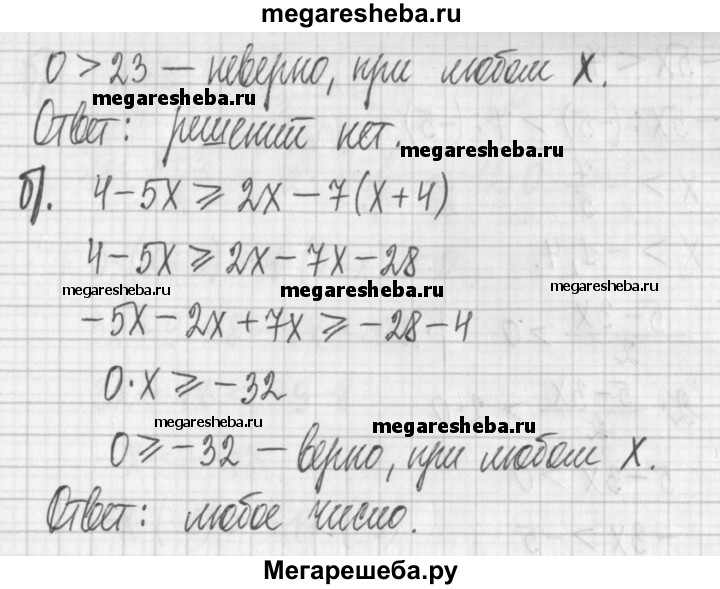 megaresheba.ru
0 > 23 — неверно, при любом x.
megaresheba.ru
Ответ: решений нет.
megaresheba.ru
б). 4 – 5x ⩾ 2x – 7(x + 4)
4 – 5x ⩾ 2x – 7x – 28
megaresheba.ru megaresheba.ru megaresheba.ru
–5x – 2x + 7x ⩾ –28 – 4
0·x ⩾ –32
megaresheba.ru megaresheba.ru
0 ⩾ –32 — верно, при любом x.
Ответ: любое число.
Мегарешеба.ру